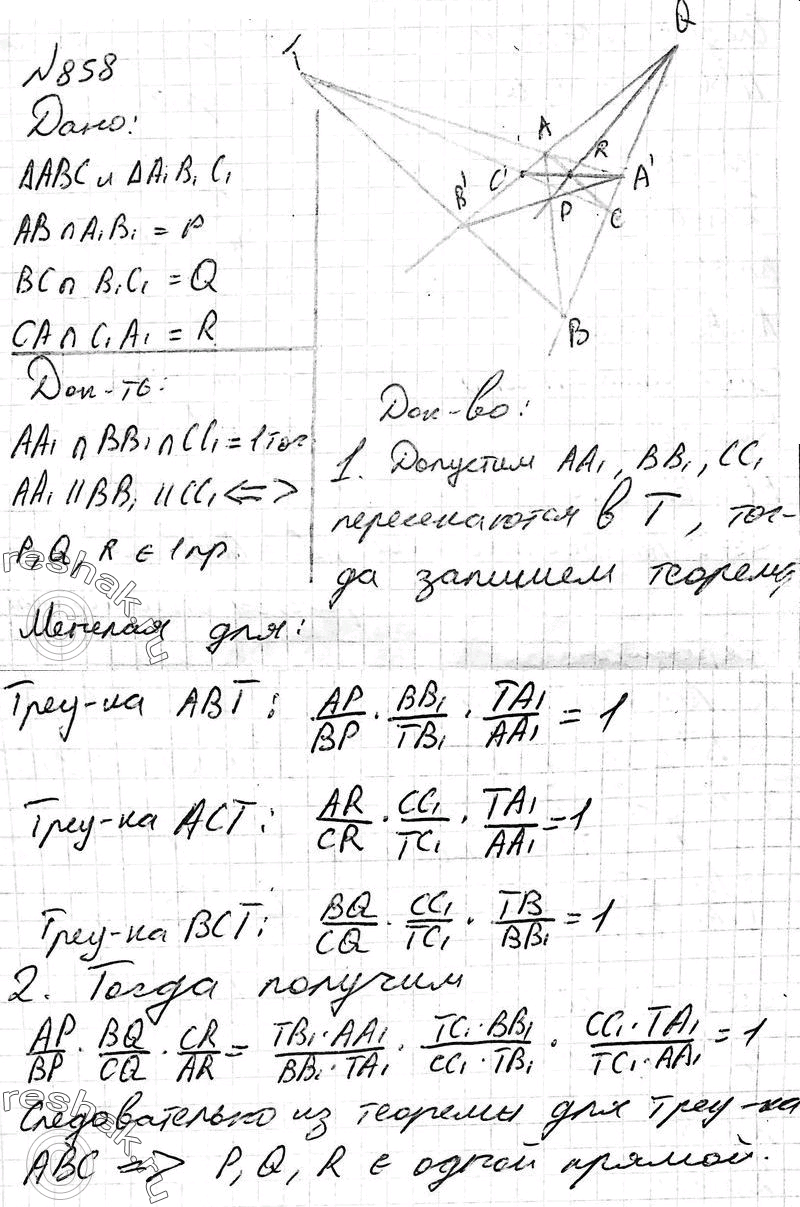 N858
Дано:
ΔABC и ΔA₁B₁C₁
AB∩A₁B₁ = P
BC∩ B₁C₁ = Q
CA∩C₁A₁ = R
Док-ть:
AA₁ ∩ BB₁ ∩ CC₁ = 1 точ.
AA₁ || BB₁ || CC₁ <=>
P, Q, R ∈ 1 пр.
T
Q
A
R
C'
A'
B'
P
C
B
Док-во:
1. Допустим AA₁, BB₁, CC₁
пересекаются в T, тог-
да запишем теорему
Менелая для:
Треу-ка ABT: AP/BP · BB₁/TB₁ · TA₁/AA₁ = 1
Треу-ка ACT: AR/CR · CC₁/TC₁ · TA₁/AA₁ = 1
Треу-ка BCT: BQ/CQ · CC₁/TC₁ · TB/BB₁ = 1
2. Тогда получим
AP/BP · BQ/CQ · CR/AR = TB₁·AA₁/BB₁·TA₁ · TC₁·BB₁/CC₁·TB₁ · CC₁·TA₁/TC₁·AA₁ = 1
Следовательно из теоремы для треу-ка
ABC => P, Q, R ∈ одной прямой.
reshak.ru
reshak.ru